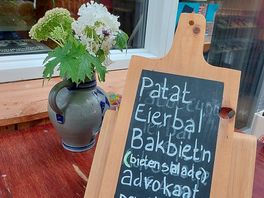 Patat
Eierbal
Bakbiet'n
(bietensalade)
advokaat